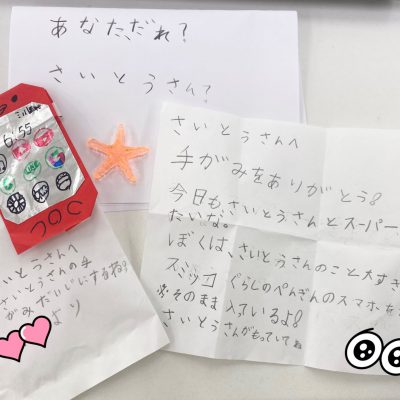 あなただれ？
さいとうさん？
6:55
さいとうさんへ
手がみをありがとう！
今日もさいとうさんとスーパー
たいな。
ぼくは、さいとうさんのこと大すき
スミッコぐらしのぺんぎんのスマホを
※そのまま入っているよ！
さいとうさんがもっていてね
さいとうさんへ
さいとうさんの手
がみだいじにするね！
より